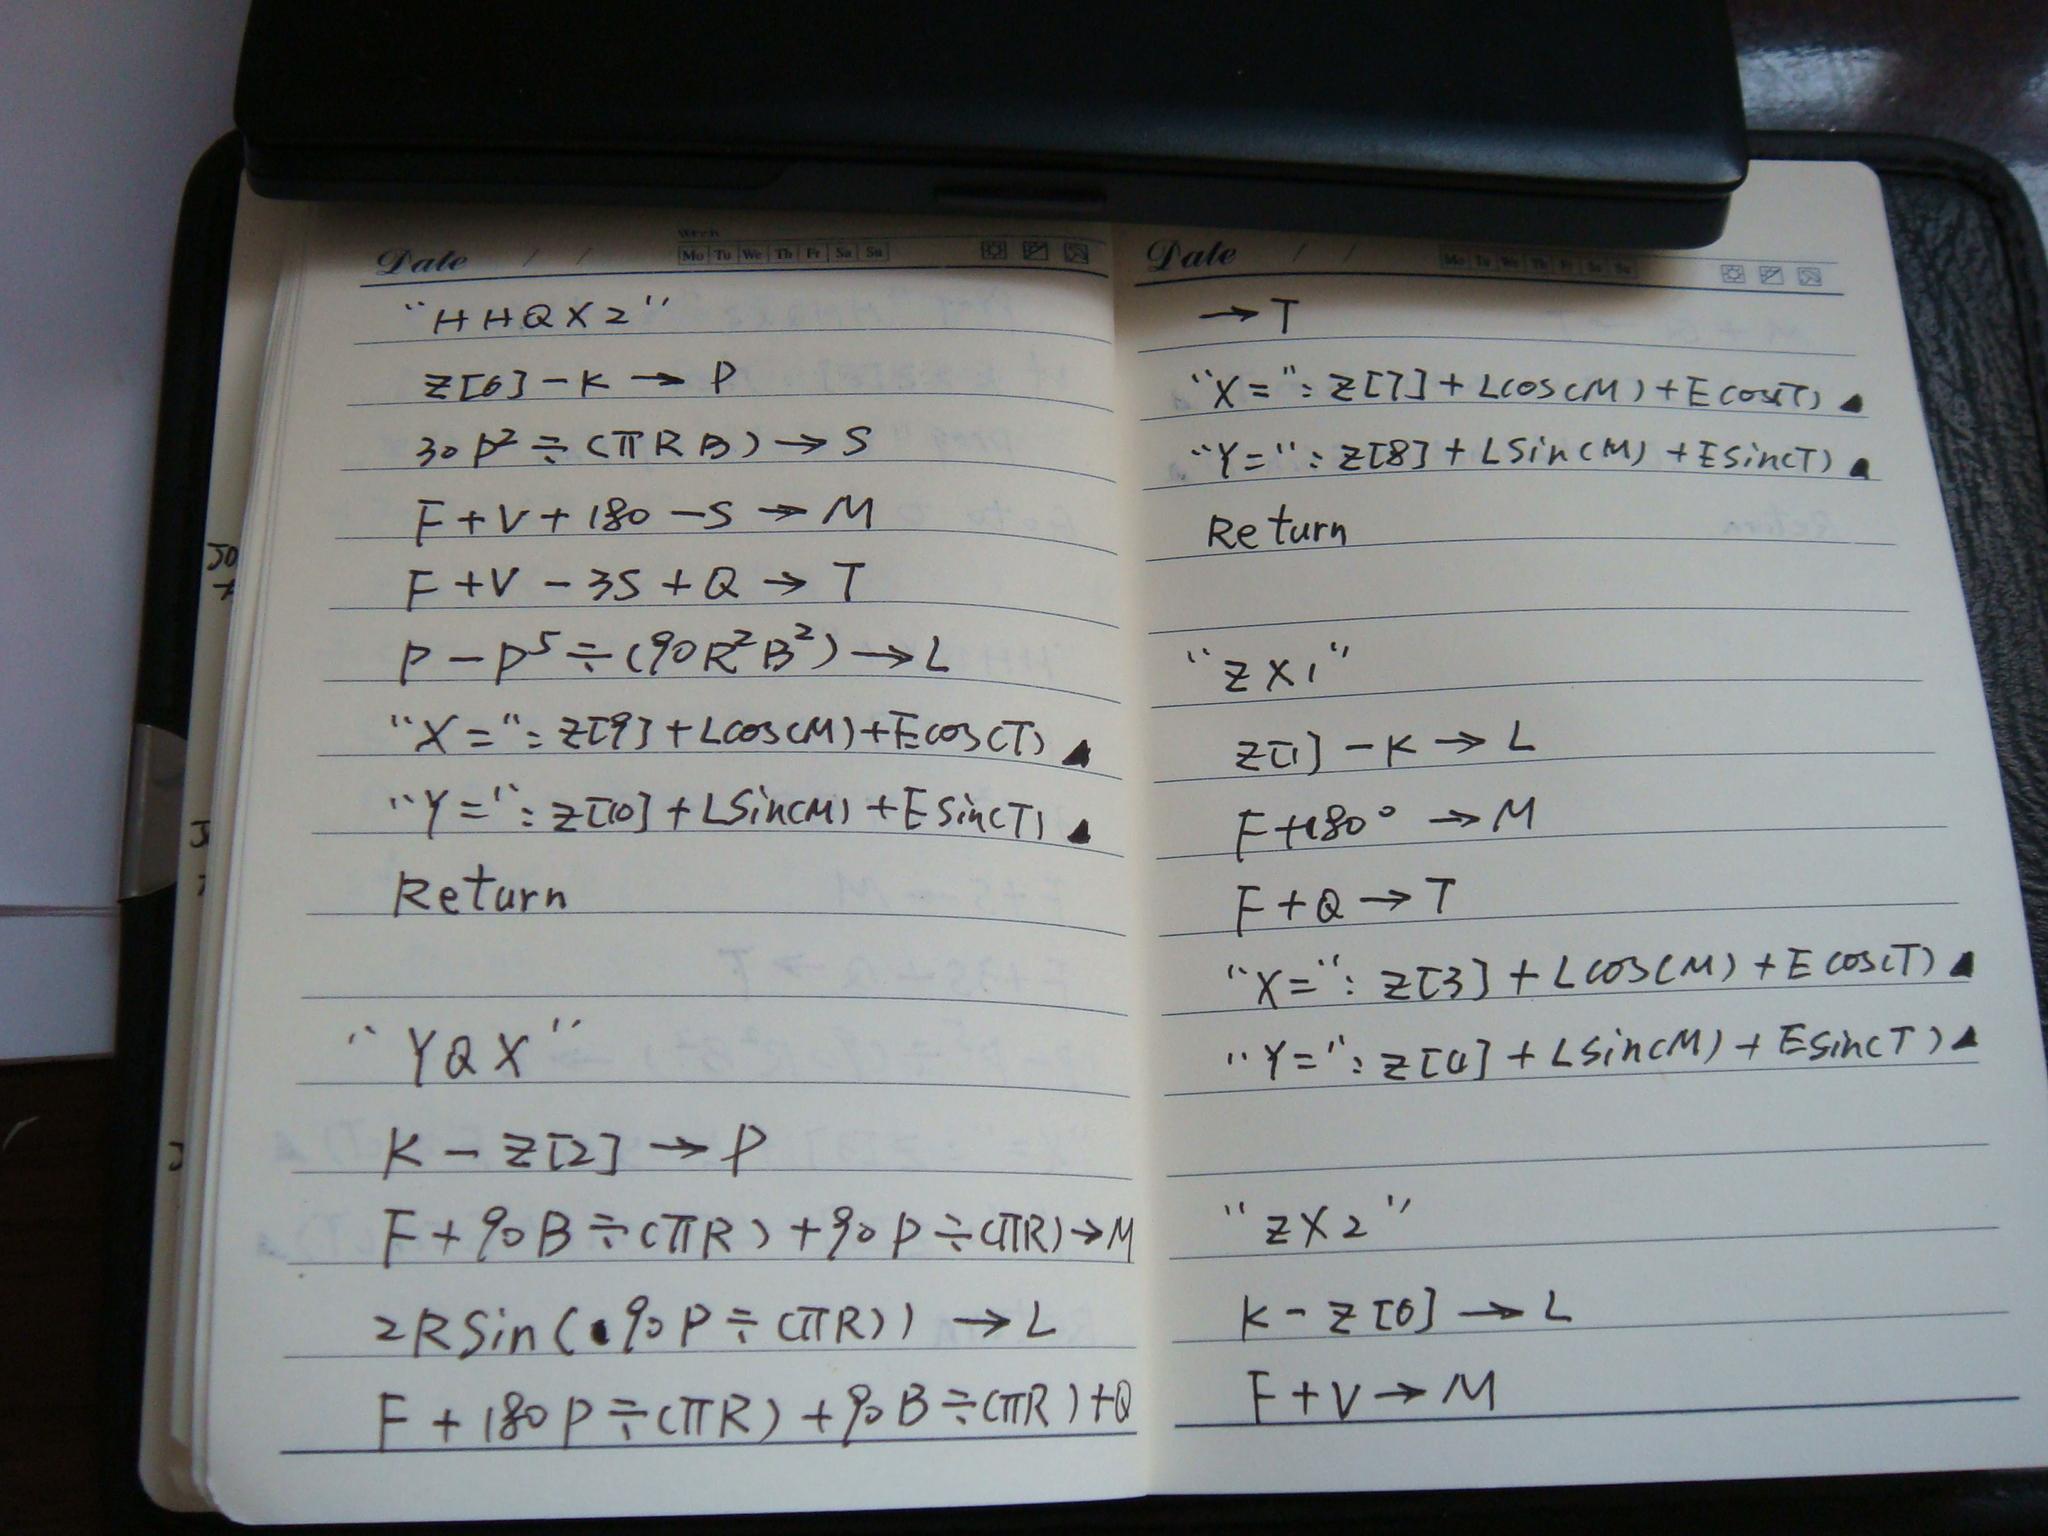 Date / / Week
Mo Tu We Th Fr Sa Su
"HHQX2"
Z[6]-K→P
30P²÷(πRB)→S
F+V+180-S→M
F+V-3S+Q→T
P-P⁵÷(90R²B²)→L
"X=":Z[9]+Lcos(M)+Ecos(T)◢
"Y=":Z[10]+LSin(M)+ESin(T)◢
Return
"YQX"
K-Z[2]→P
F+90B÷(πR)+90P÷(πR)→M
2RSin(90P÷(πR))→L
F+180P÷(πR)+90B÷(πR)+Q
Date / /
Mo Tu We Th Fr Sa Su
→T
"X=":Z[7]+Lcos(M)+Ecos(T)◢
"Y=":Z[8]+LSin(M)+ESin(T)◢
Return
"ZX1"
Z[1]-K→L
F+180°→M
F+Q→T
"X=":Z[3]+Lcos(M)+Ecos(T)◢
"Y=":Z[4]+LSin(M)+ESin(T)◢
"ZX2"
K-Z[6]→L
F+V→M